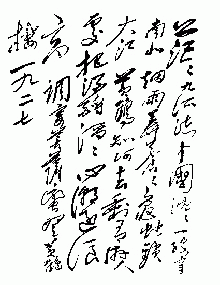 茫々九派流中國沉々一線穿
南北烟雨莽蒼々龜蛇鎖
大江黄鶴知何去剩有游人
處把酒酹滔々心潮逐浪
高調寄菩薩蠻登黄鶴
樓一九二七